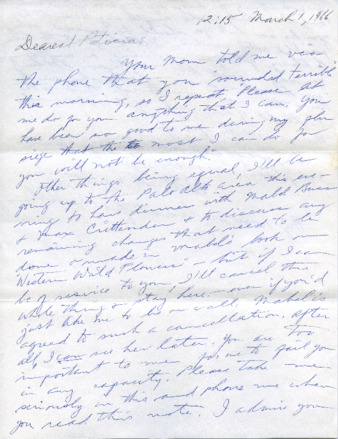 2:15 March 1, 1966
Dearest
Your Mom told me via
the phone that you sounded terrible
this morning, so I repeat, Please let
me do for you anything that I can. You
have been so good to me during my flu
siege that the most I can do for
you will not be enough.
Other things being equal, I'll be
going up to the Palo Alto area this eve-
ning to have dinner with
& Max Crittenden & to discuss any
remaining changes that need to be
done & made in Mabel's book on
"Western Wild Flowers" – but if I can
be of service to you, I'll cancel the
whole thing or stay here – even if you'd
just like me to be on call. Mabel's
agreed to such a cancellation; after
all, I can see her later. You are too
important to me for me to fail you
in any capacity. Please take me
seriously in this and phone me when
you read this note. I admire you